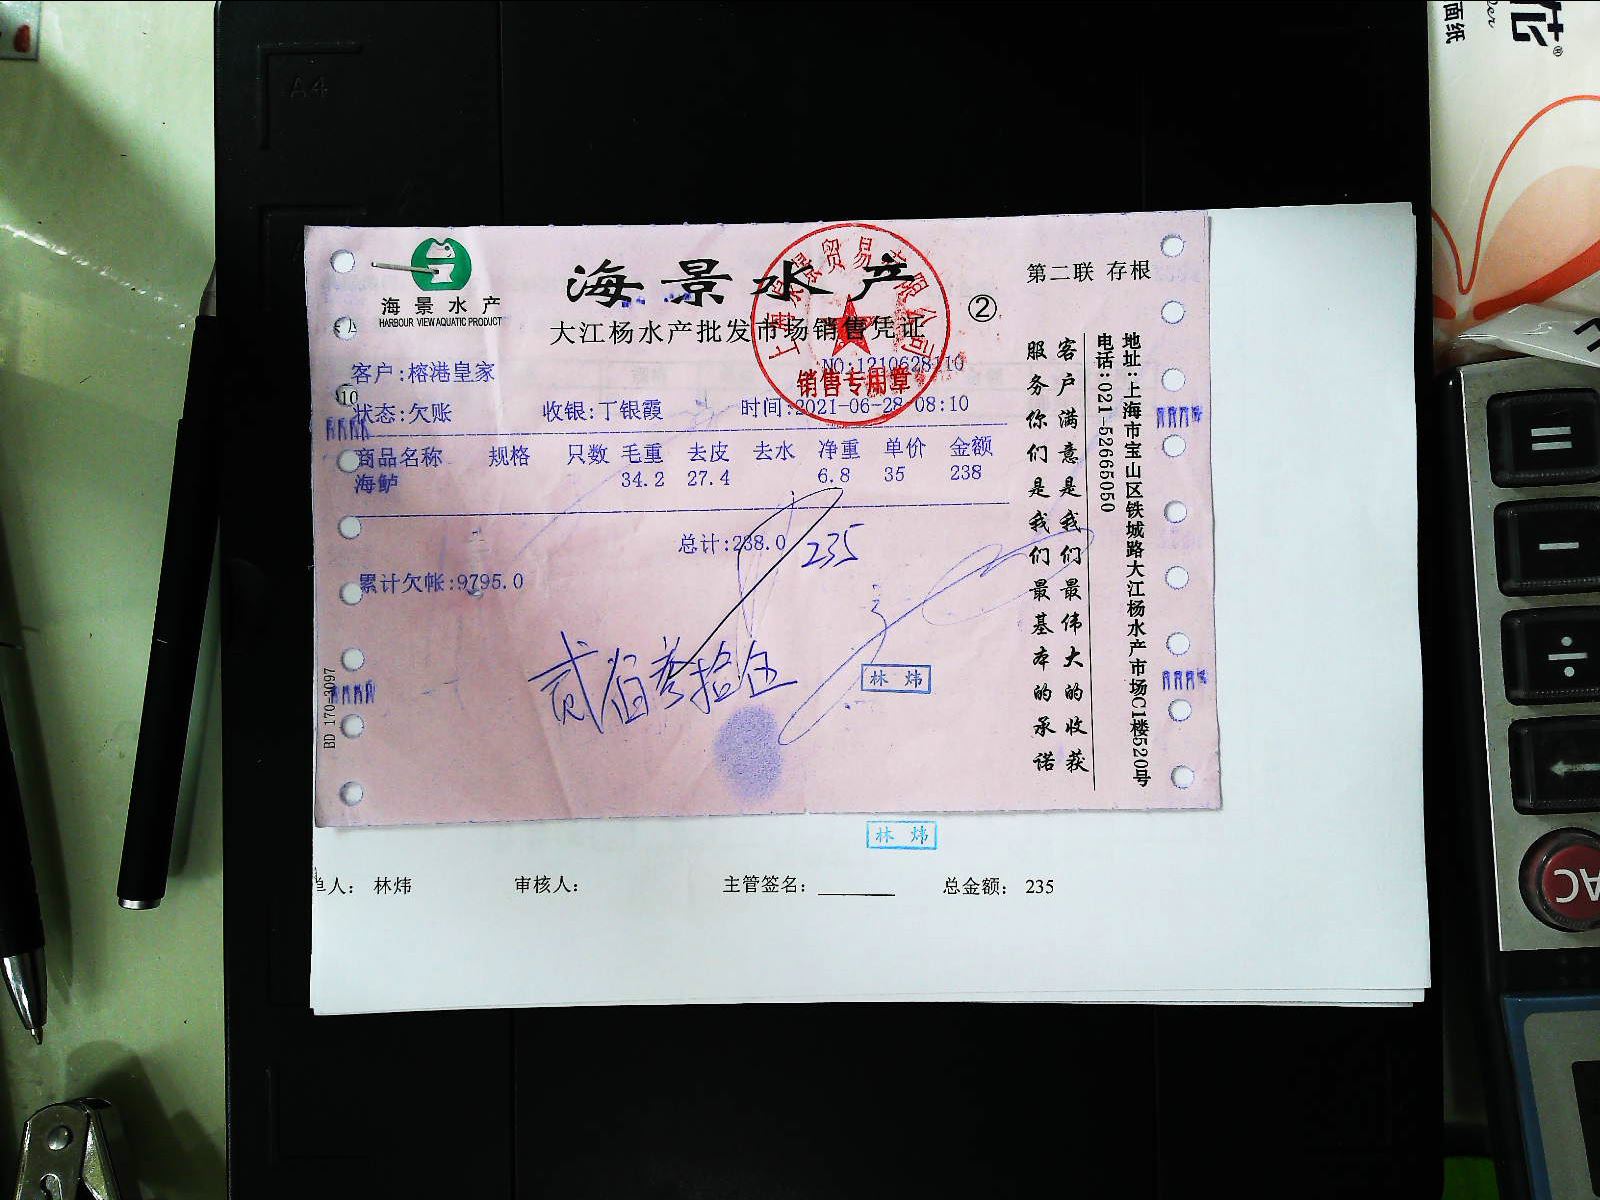 A4
海景水产
HARBOUR VIEW AQUATIC PRODUCT
海景水产
大江杨水产批发市场销售凭证
②
第二联 存根
客户:榕港皇家
NO:1210628110
状态:欠账 收银:丁银霞 时间:2021-06-28 08:10
商品名称 规格 只数 毛重 去皮 去水 净重 单价 金额
海鲈 34.2 27.4 6.8 35 238
总计:238.0 235
累计欠帐:9795.0
贰佰叁拾伍
林炜
销售专用章
客户满意是我们最伟大的收获
服务你们是我们最基本的承诺
地址:上海市宝山区铁城路大江杨水产市场C1楼520号
电话:021-52665050
BD 170-3097
10
林炜
单人: 林炜 审核人: 主管签名: 总金额: 235
面纸
花®
=
−
÷
AC